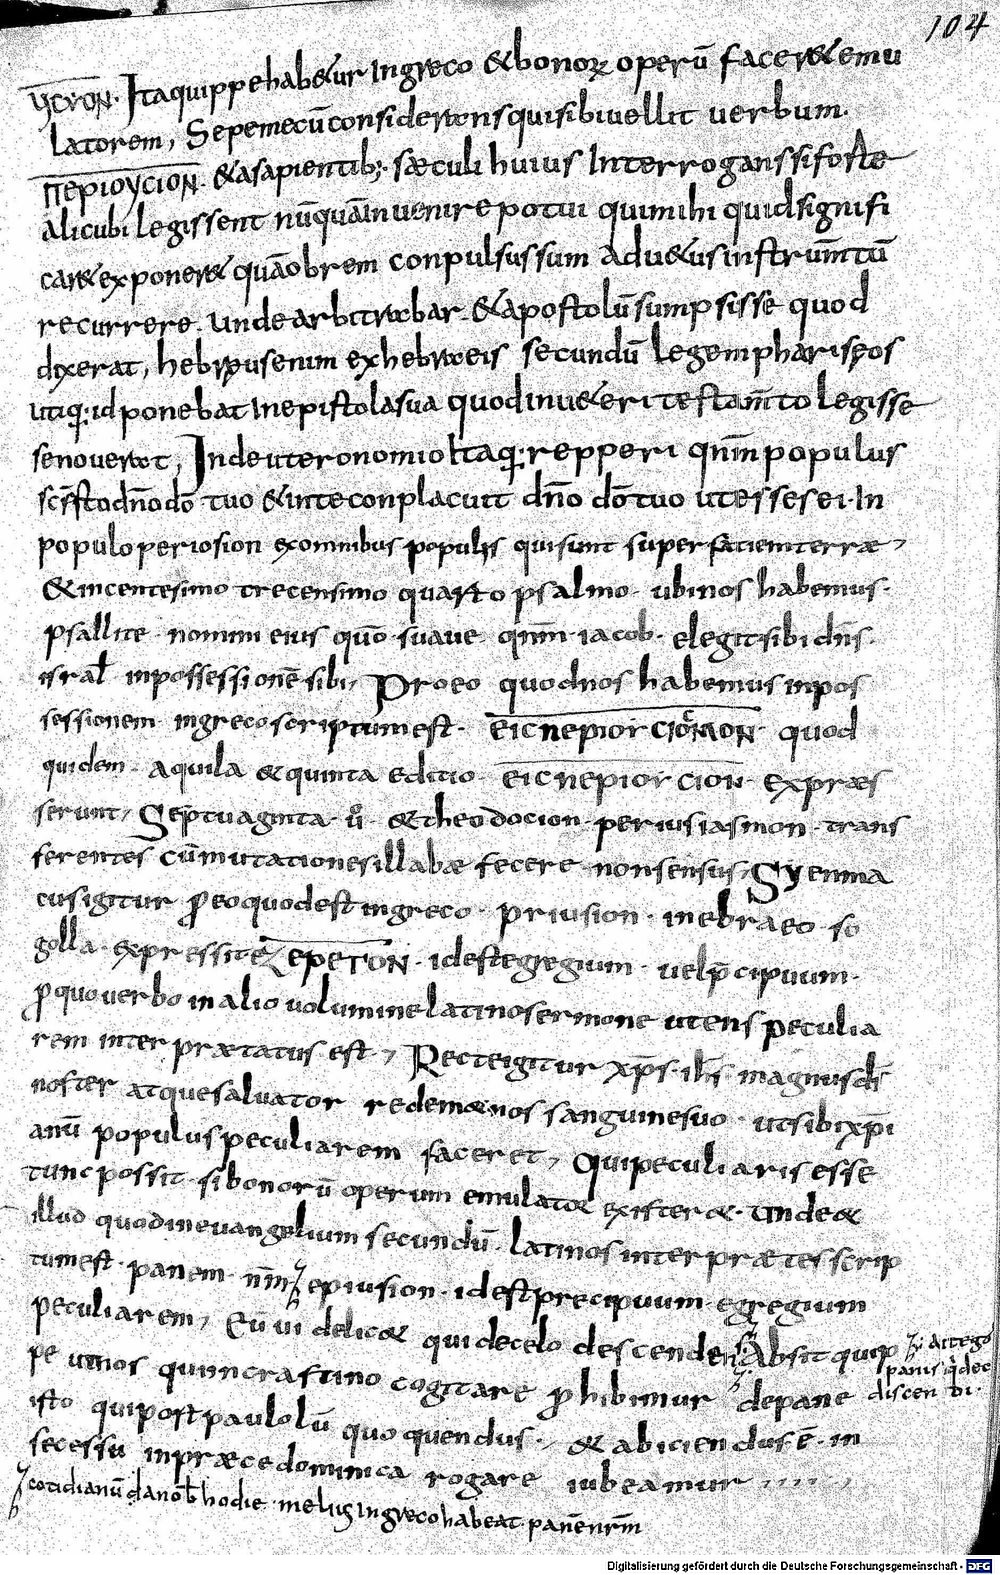 104
ycyon. Itaquippe hab&ur ingreco &bonoꝝ operū facer& emu
latorem, Sepe mecū considerans quisibiuellit uerbum.
περιογςιοΝ. &asapientib; sæculi huius Interrogans siforte
alicubi legissent nūquā inuenire potui quimihi quidsignifi
car& exponer& quāobrem conpulsussum adu&us instrumtū
recurrere. unde arbitrabar. &apostolū sumpsisse quod
dixerat, hebręus enim exhebraeis secundū legem phariseos
utiq; id ponebat Inepistola sua quodinu&eri testam̄to legisse
senouerat, Indeuteronomio Itaq; repperi qm̄ populus
scs̄ estodn̄odō tuo &inte conplacuit dn̄o dō tuo utesses ei. In
populo periosion exomnibus populis quisunt super faciem terræ,
&incentesimo trecensimo quarto psalmo. ubinos habemus.
psallite nomini eius quō suaue qnm̄ iacob. elegitsibi dn̄s.
israł inpossessionē sibi, Proeo quodnos habemus inpos
sessionem ingreco scriptum est. ειc περιογ cιοΝ quod
quidem. aquila &quinta editio. ειc περιογ cιοΝ. expræs
serunt, Septuaginta. ū. &theodocion. periusiasmon. trans
ferentes cūmutatione sillabæ fecere. nonsensus, Syenma
cus igitur ꝓeoquodest ingreco. priusion. inebraeo. so
golla. expressit εΖερετοΝ. idest egregium. uel p̄cipuum.
ꝓquo uerbo inalio uolumine latino sermone utens peculia
rem interprætatus est, Recte igitur xp̄s. ih̄s magnusds̄
noster atque saluator redem&nos sanguinesuo. utsibi xp̄i
anū populus peculiarem faceret, Quipeculiaris esse
tunc possit. sibonorū operum emulator exister&. unde&
illud quodineuangelium secundū. latinos interprætes scrip
tum est. panem nm̄ epiusion. idest precipuum. egregium
peculiarem, Eū uidelic& qui decelo descenderit, Absit quip
pe utnos quiincrastino cogitare ꝓhibimur depane
isto quipost paulolū quoquendus. &abiciendus ē. in
secessu inpræce dominica rogare iubeamur
panis q̄ dec
discendi.
cotidianū danob̄ hodie. melius ingreco habeat. panēnrm̄
Digitalisierung gefördert durch die Deutsche Forschungsgemeinschaft - DFG